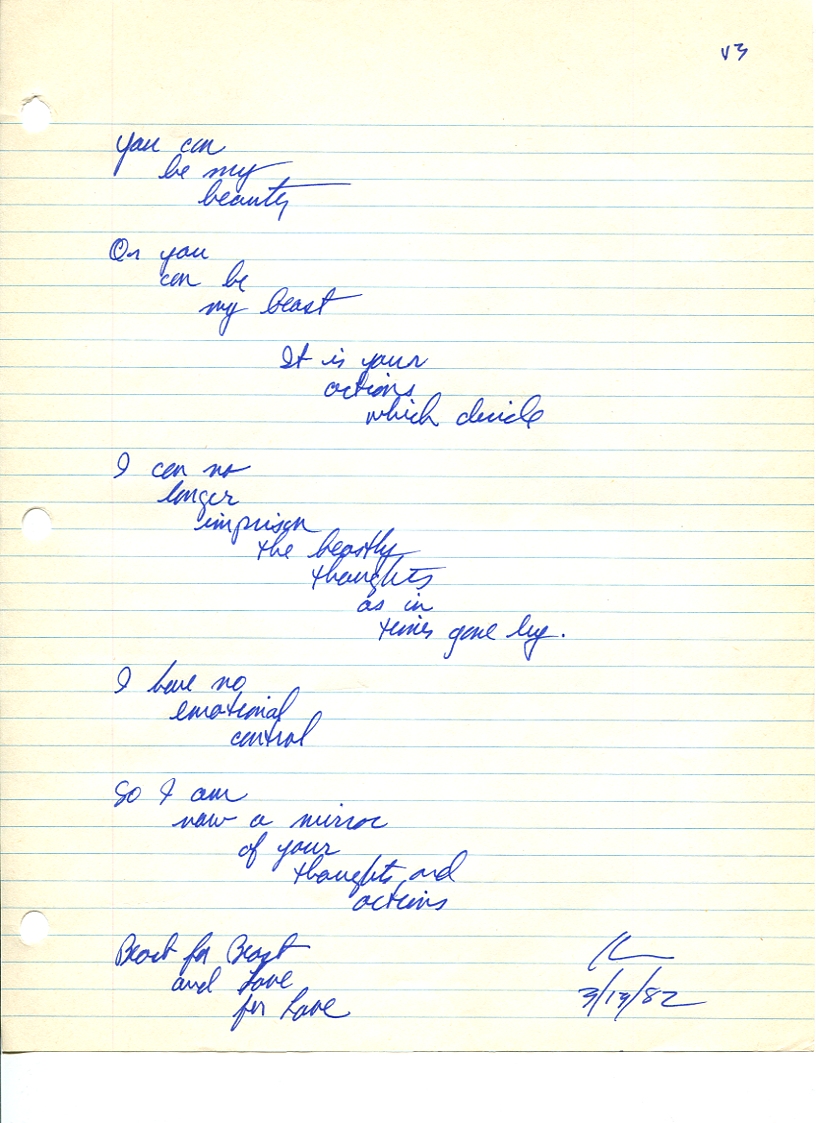 V3
You can
be my
beauty
Or you
can be
my beast
It is your
actions
which decide
I can no
longer
imprison
the beastly
thoughts
as in
times gone by.
I have no
emotional
control
So I am
now a mirror
of your
thoughts and
actions
Beast for Beast
and Love
for Love
3/19/82